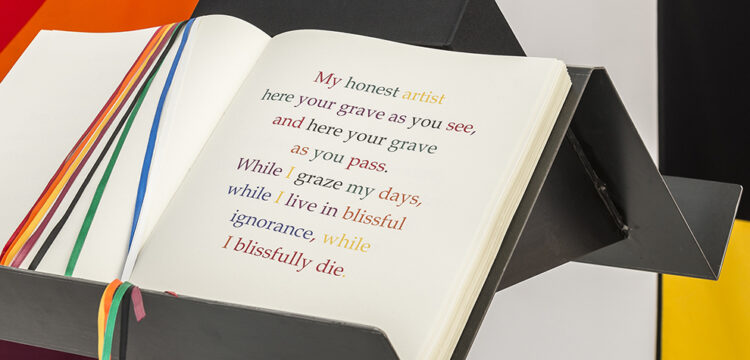 My honest artist
here your grave as you see,
and here your grave
as you pass.
While I graze my days,
while I live in blissful
ignorance, while
I blissfully die.